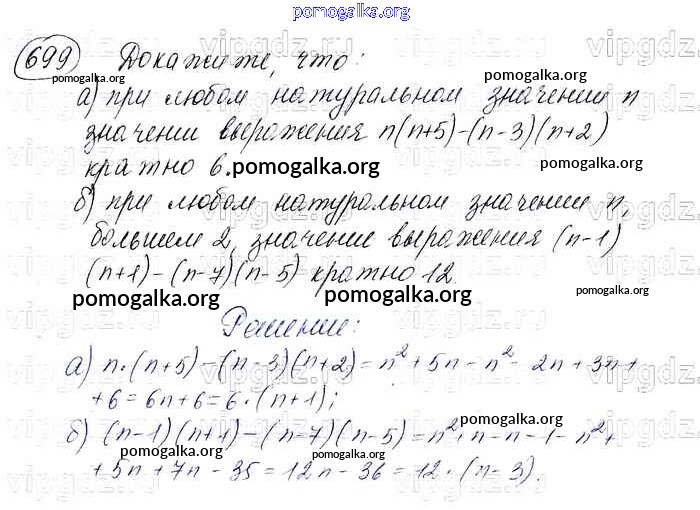 pomogalka.org
699 Докажите, что:
pomogalka.org pomogalka.org
а) при любом натуральном значении n
значении выражения n(n+5)-(n-3)(n+2)
кратно 6. pomogalka.org pomogalka.org
б) при любом натуральном значении n,
большем 2, значение выражения (n-1)
(n+1)-(n-7)(n-5) кратно 12.
pomogalka.org pomogalka.org pomogalka.org
Решение:
а) n·(n+5)-(n-3)(n+2)=n²+5n-n²-2n+3n+
+6=6n+6=6·(n+1);
pomogalka.org pomogalka.org
б) (n-1)(n+1)-(n-7)(n-5)=n²+n-n-1-n²+
+5n+7n-35=12n-36=12·(n-3).
pomogalka.org pomogalka.org